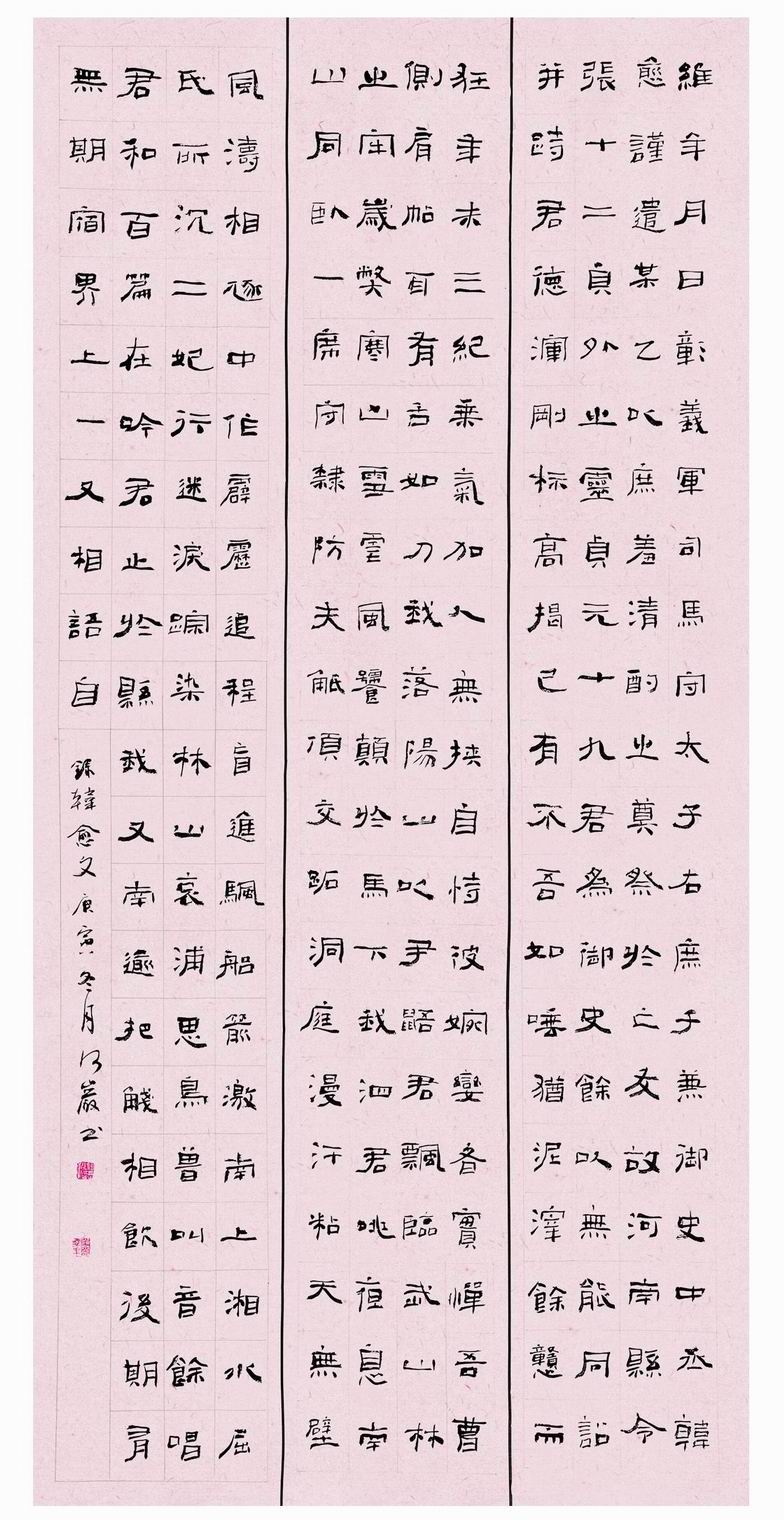 維年月日彰義軍司馬守太子右庶子兼御史中丞韓
愈謹遣某乙以庶羞清酌之奠祭於亡友故河南縣令
張十二員外之靈貞元十九君為御史餘以無能同詔
并跱君德渾剛标高揭己有不吾如唾猶泥滓餘戇而
狂年未三紀乘氣加人無挾自恃彼婉孌者實憚吾曹
側肩帖耳有舌如刀我落陽山以尹鼯君飄臨武山林
之牢歲獘寒凶雪虐風饕顛於馬下我泗君咷夜息南
山同臥一席守隸防夫觝頂交跖洞庭漫汗粘天無壁
風濤相豗中作霹靂追程盲進颿船箭激南上湘水屈
氏所沉二妃行迷淚踪染林山哀浦思鳥兽叫音餘唱
君和百篇在吟君止於縣我又南逾把醆相飲後期有
無期宿界上一又相語自
錄韓愈文庚寅冬月